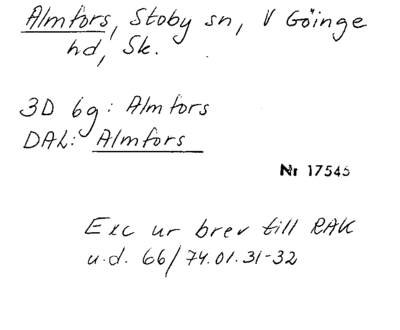 Almfors, Stoby sn, V Göinge
hd, Sk.
3D 6g: Almfors
DAL: Almfors
Nr 17545
Exc ur brev till RAK
u.d. 66/74.01.31-32